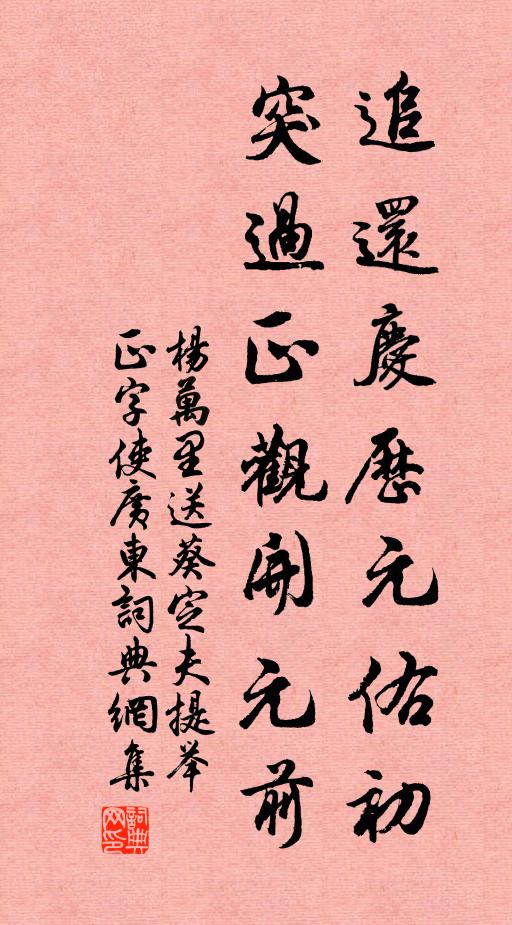 追還慶歷元佑初
突過正觀開元前
楊萬里送蔡定夫提举
正字使廣東詞典網集
詞典
网印